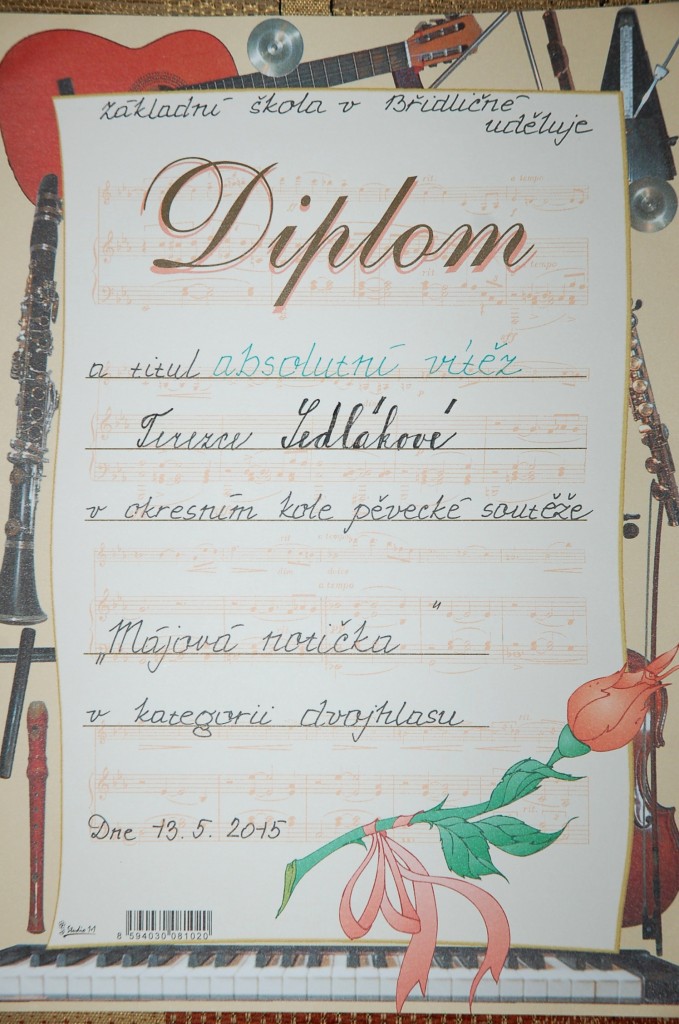 základní škola v Břidličné
uděluje
Diplom
a titul absolutní vítěz
Terezce Sedlákové
v okresním kole pěvecké soutěže
„Májová notička“
v kategorii dvojhlasu
Dne 13. 5. 2015
8 594030 081020